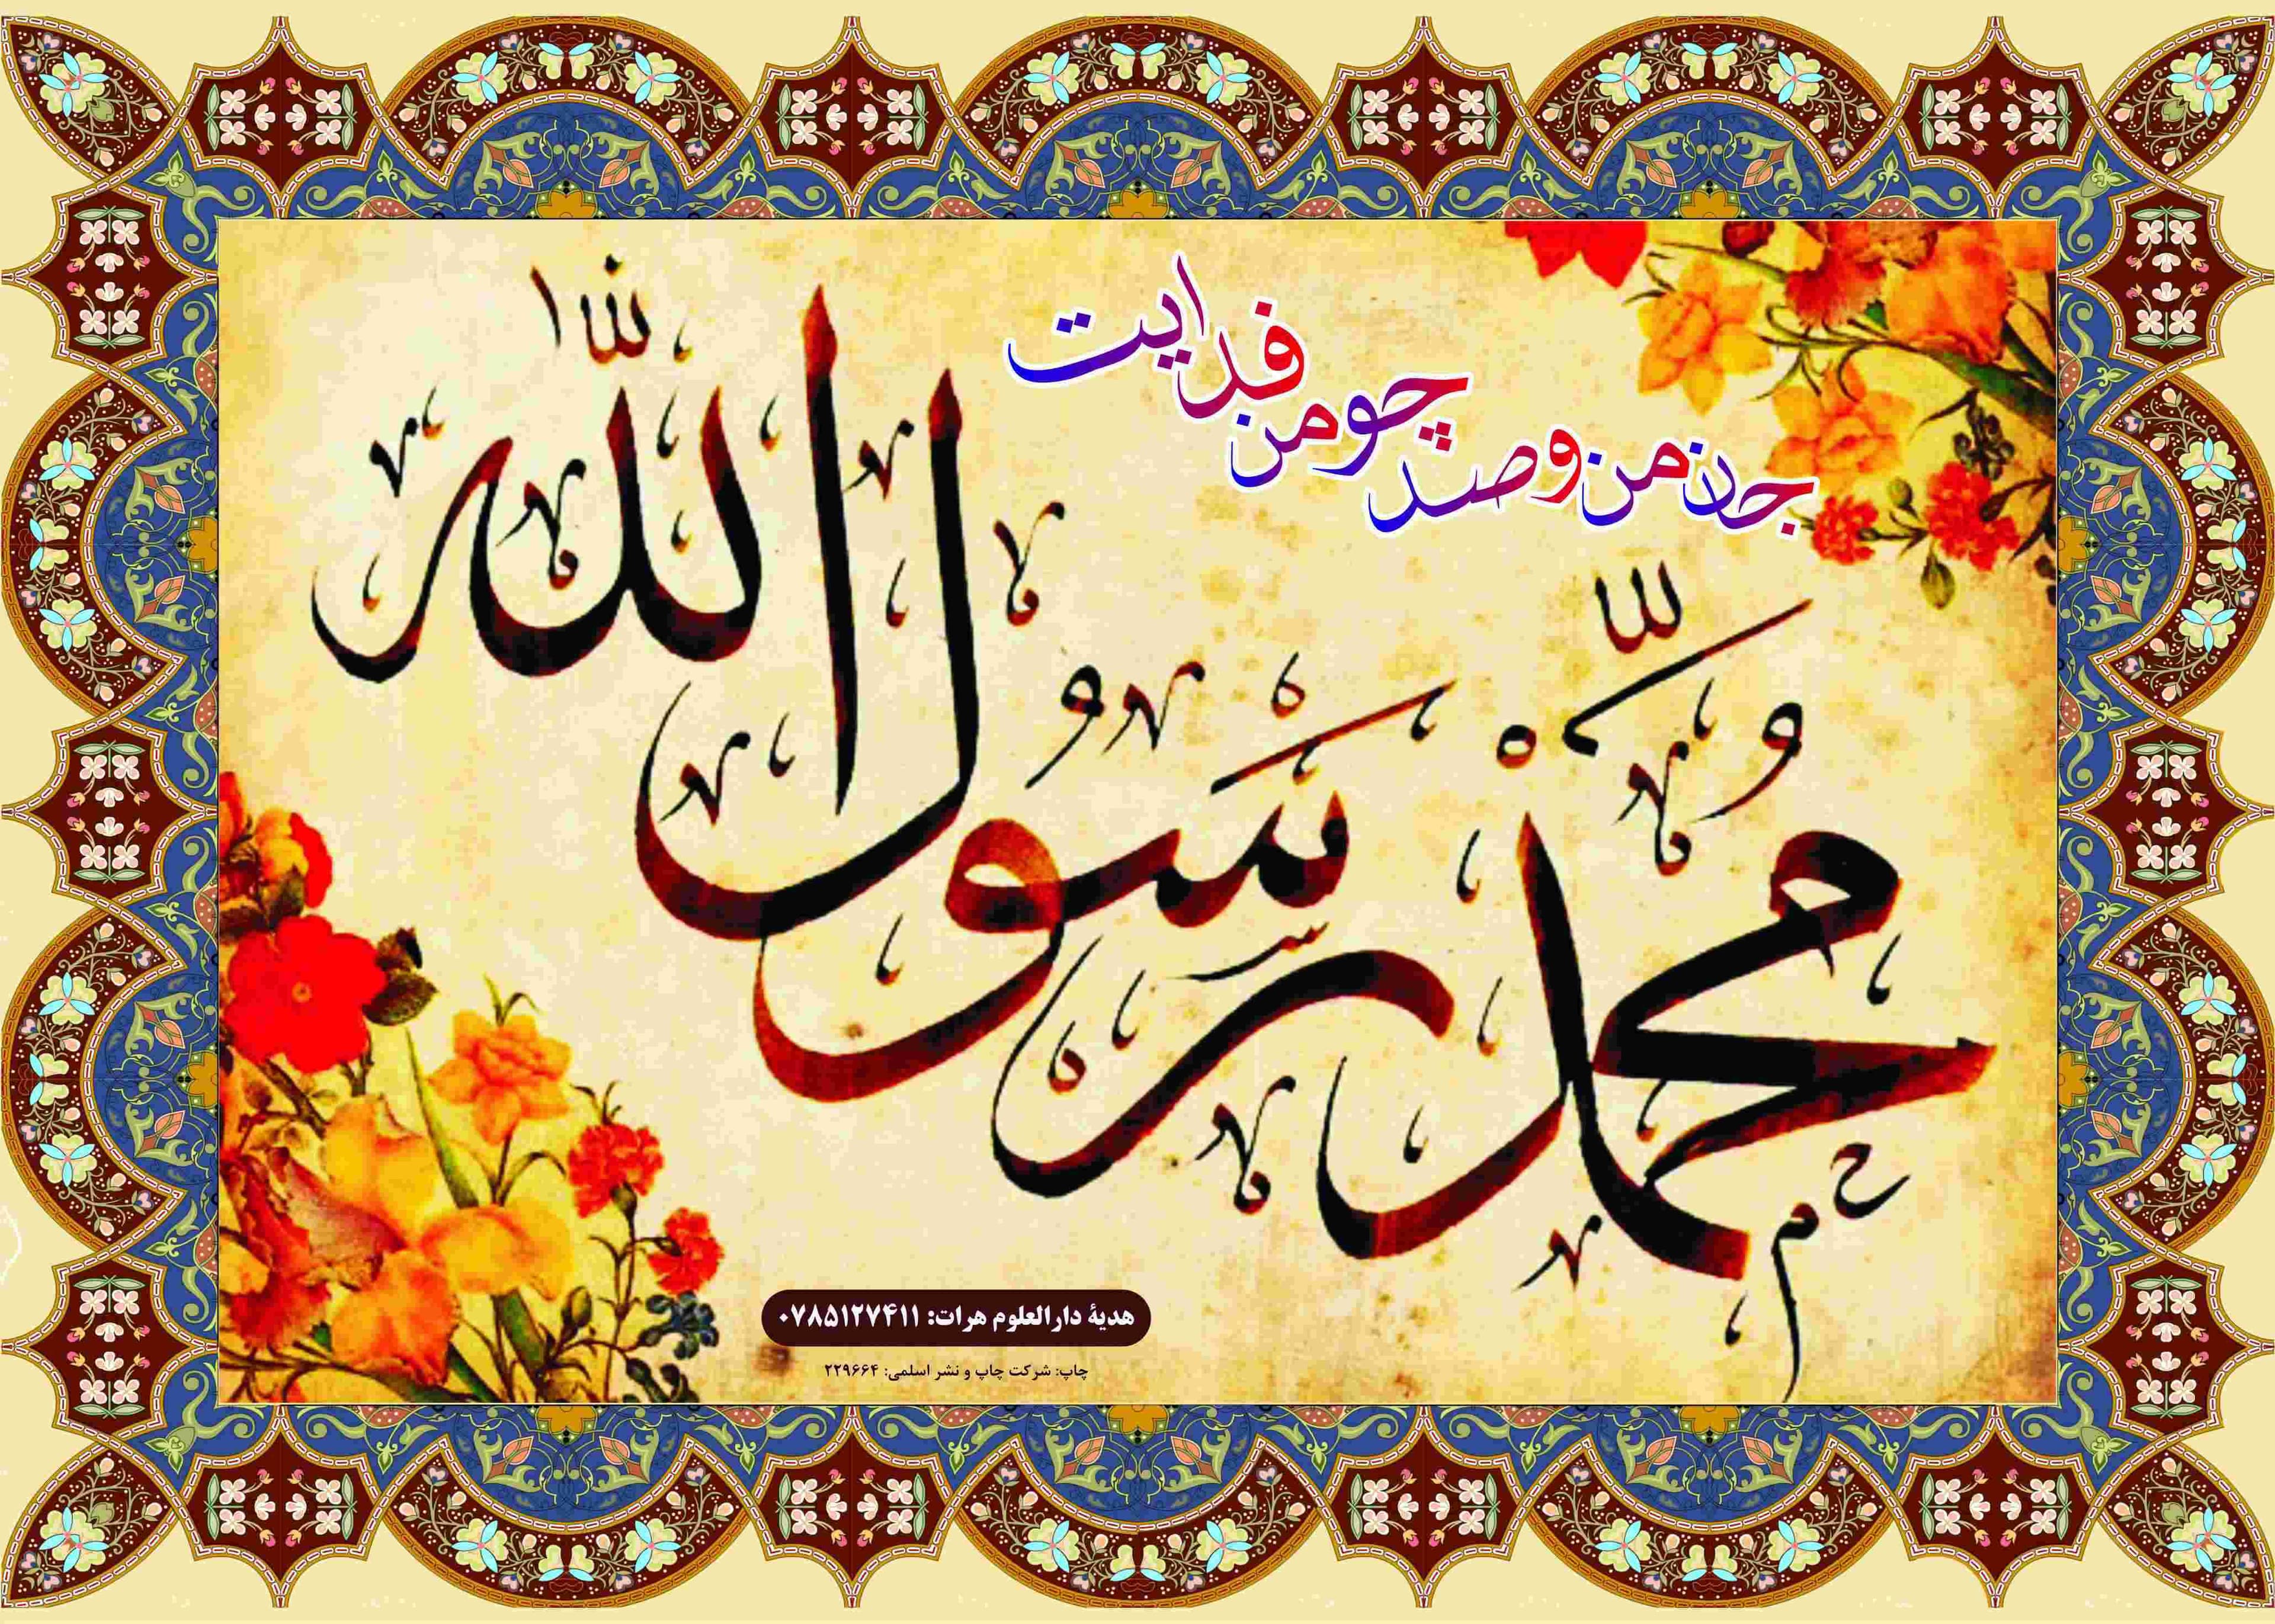 جان من و صد چو من فدایت
محمد رسول الله
هدیهٔ دارالعلوم هرات: ۰۷۸۵۱۲۷۴۱۱
چاپ: شرکت چاپ و نشر اسلمی: ۲۲۹۶۶۴